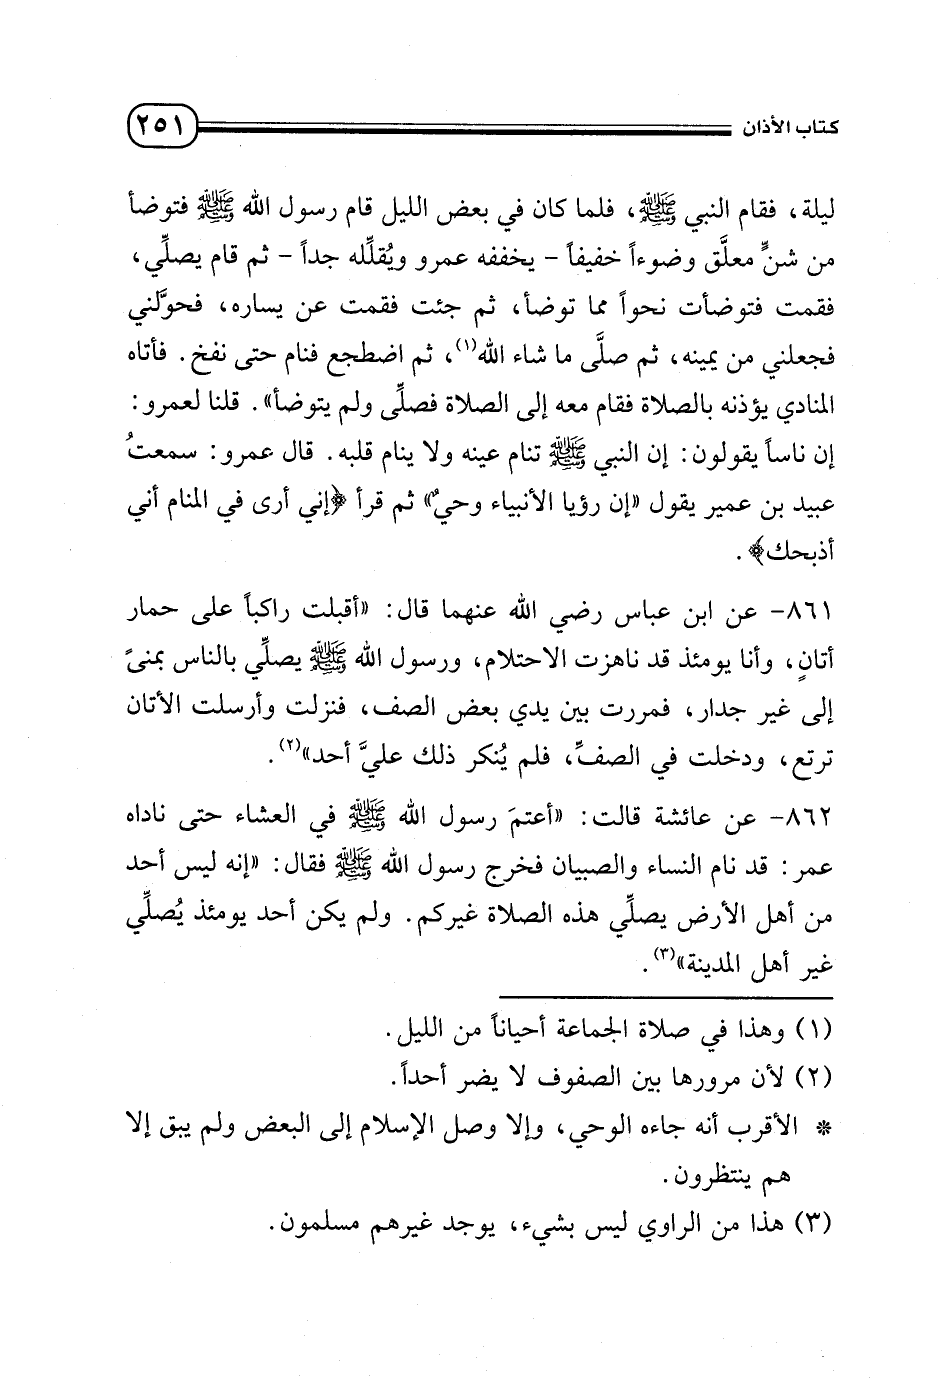 كتاب الأذان ٢٥١
ليلة، فقام النبي ﷺ، فلما كان في بعض الليل قام رسول الله ﷺ فتوضأ
من شنٍّ معلَّق وضوءاً خفيفاً - يخففه عمرو ويُقلِّله جداً - ثم قام يصلِّي،
فقمت فتوضأت نحواً مما توضأ، ثم جئت فقمت عن يساره، فحوَّلني
فجعلني من يمينه، ثم صلَّى ما شاء الله(١)، ثم اضطجع فنام حتى نفخ. فأتاه
المنادي يؤذنه بالصلاة فقام معه إلى الصلاة فصلَّى ولم يتوضأ». قلنا لعمرو:
إن ناساً يقولون: إن النبي ﷺ تنام عينه ولا ينام قلبه. قال عمرو: سمعتُ
عبيد بن عمير يقول «إن رؤيا الأنبياء وحيٌ» ثم قرأ ﴿إني أرى في المنام أني
أذبحك﴾.
٨٦١- عن ابن عباس رضي الله عنهما قال: «أقبلت راكباً على حمار
أتانٍ، وأنا يومئذ قد ناهزت الاحتلام، ورسول الله ﷺ يصلِّي بالناس بمنىً
إلى غير جدار، فمررت بين يدي بعض الصف، فنزلت وأرسلت الأتان
ترتع، ودخلت في الصفِّ، فلم يُنكر ذلك عليَّ أحد»(٢).
٨٦٢- عن عائشة قالت: «أعتمَ رسول الله ﷺ في العشاء حتى ناداه
عمر: قد نام النساء والصبيان فخرج رسول الله ﷺ فقال: «إنه ليس أحد
من أهل الأرض يصلِّي هذه الصلاة غيركم. ولم يكن أحد يومئذ يُصلِّي
غير أهل المدينة»(٣).
(١) وهذا في صلاة الجماعة أحياناً من الليل.
(٢) لأن مرورها بين الصفوف لا يضر أحداً.
* الأقرب أنه جاءه الوحي، وإلا وصل الإسلام إلى البعض ولم يبق إلا
هم ينتظرون.
(٣) هذا من الراوي ليس بشيء، يوجد غيرهم مسلمون.